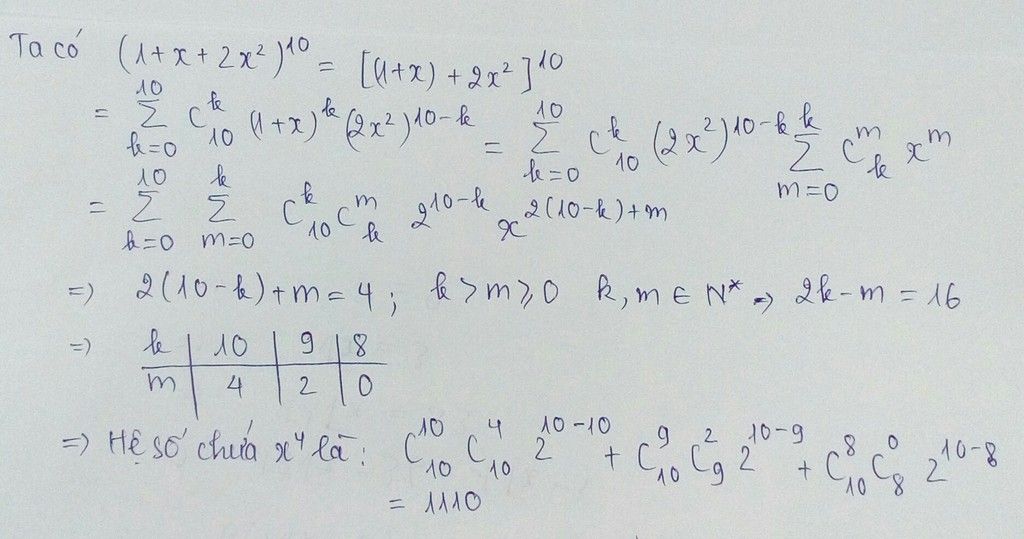 Ta có (1+x+2x²)¹⁰ = [(1+x)+2x²]¹⁰
= \sum_{k=0}^{10} C_{10}^{k} (1+x)^{k} (2x²)^{10-k} = \sum_{k=0}^{10} C_{10}^{k} (2x²)^{10-k} \sum_{m=0}^{k} C_{k}^{m} x^{m}
= \sum_{k=0}^{10} \sum_{m=0}^{k} C_{10}^{k} C_{k}^{m} 2^{10-k} x^{2(10-k)+m}
=> 2(10-k)+m = 4 ; k > m ⩾ 0 k, m ∈ N* => 2k-m = 16
=> k | 10 | 9 | 8
m | 4 | 2 | 0
=> Hệ số chứa x⁴ là: C_{10}^{10} C_{10}^{4} 2^{10-10} + C_{10}^{9} C_{9}^{2} 2^{10-9} + C_{10}^{8} C_{8}^{0} 2^{10-8}
= 1110